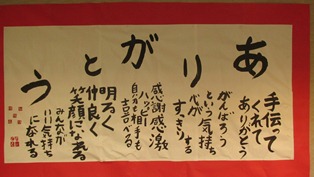 ありがとう
手伝って
くれて
ありがとう
がんばろう
という気持ち
心が
すっきりする
感謝感激
ハッピー
自分も相手も
明るく
仲良く
笑顔になれる
みんなが
いい気持ち
になれる